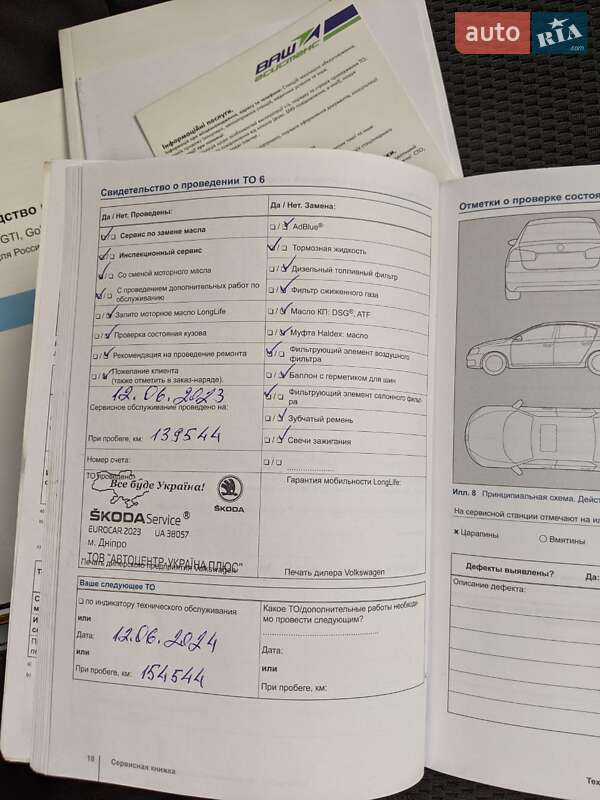 auto RIA.com
ВАШ
асистанс
Інформаційні послуги.
Свидетельство о проведении ТО 6
Да / Нет. Проведены:
Сервис по замене масла
Инспекционный сервис
Со сменой моторного масла
С проведением дополнительных работ по
обслуживанию
Залито моторное масло LongLife
Проверка состояния кузова
Рекомендация на проведение ремонта
Пожелание клиента
(также отметить в заказ-наряде).
12.06.2023
Сервисное обслуживание проведено на:
При пробеге, км: 139544
Номер счета:
ТО проведено:
Все буде Україна!
ŠKODA Service®
EUROCAR 2023 UA 38057
м. Дніпро
ТОВ "АВТОЦЕНТР-УКРАЇНА ПЛЮС"
Печать дилерского предприятия Volkswagen
Да / Нет. Замена:
AdBlue®
Тормозная жидкость
Дизельный топливный фильтр
Фильтр сжиженного газа
Масло КП: DSG®, ATF
Муфта Haldex: масло
Фильтрующий элемент воздушного
фильтра
Баллон с герметиком для шин
Фильтрующий элемент салонного фильт-
ра
Зубчатый ремень
Свечи зажигания
Гарантия мобильности LongLife:
Печать дилера Volkswagen
Ваше следующее ТО
по индикатору технического обслуживания
или
Дата: 12.06.2024
или
При пробеге, км: 154544
Какое ТО/дополнительные работы необходи-
мо провести следующим?
Дата:
или
При пробеге, км:
18 Сервисная книжка
Отметки о проверке состоя
Илл. 8 Принципиальная схема. Дейст
На сервисной станции отмечают на ил
Царапины
Вмятины
Дефекты выявлены? Да:
Описание дефекта:
Тех
дство
GTI, Go
для Росси